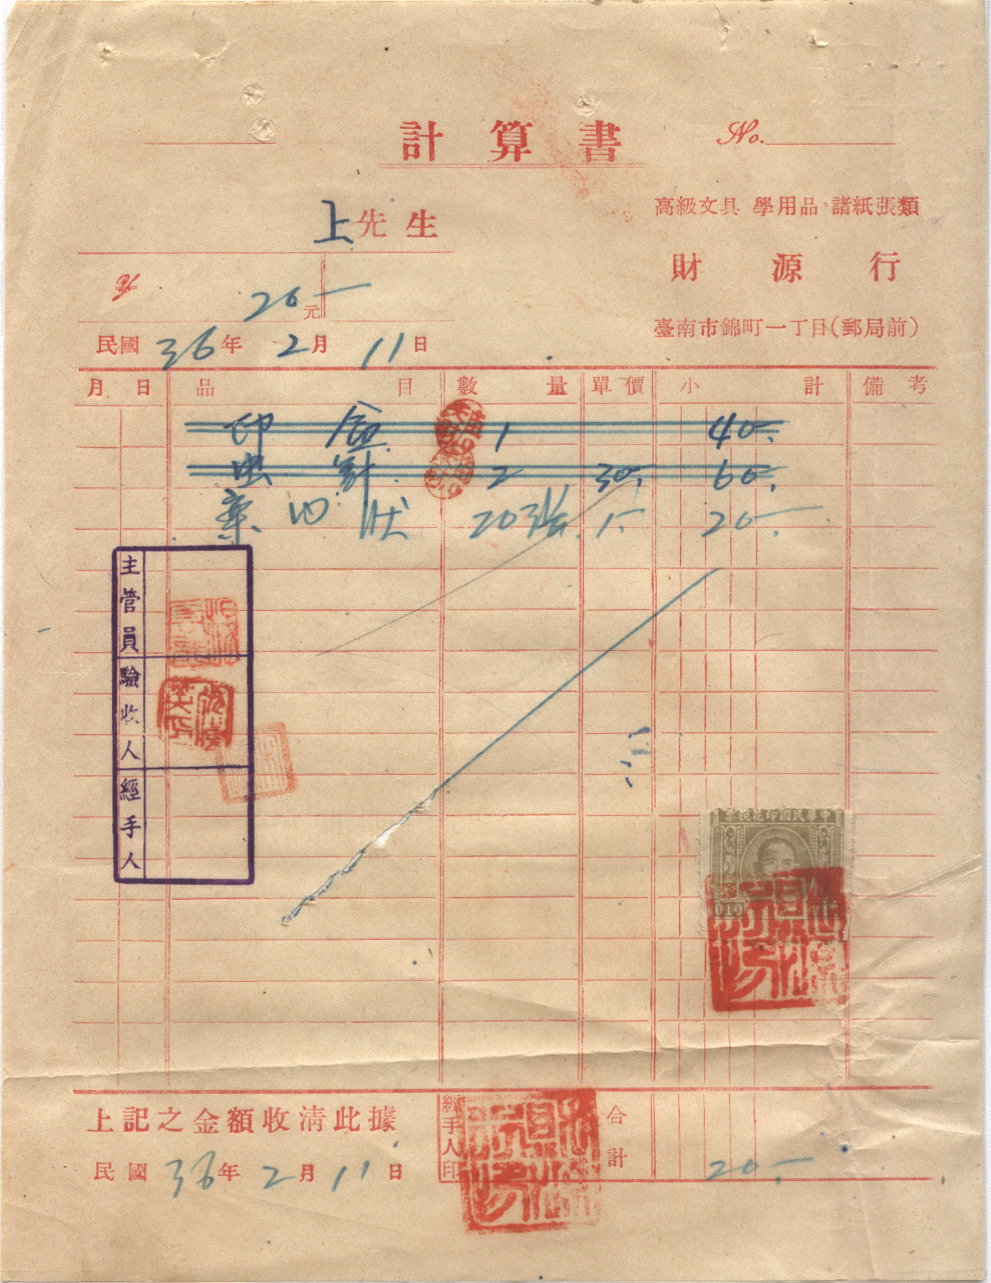 計算書
No.
高級文具 學用品 諸紙張類
財源行
臺南市錦町一丁目(郵局前)
上先生
20-元
民國36年2月11日
月 日 品目 數量 單價 小計 備考
印 盒 1 40-
虫 針 2 30- 60-
案內狀 20張 1- 20-
主管員
驗收人
經手人
中華民國印花稅票
010
上記之金額收清此據
經手人印
合計 20-
民國36年2月11日